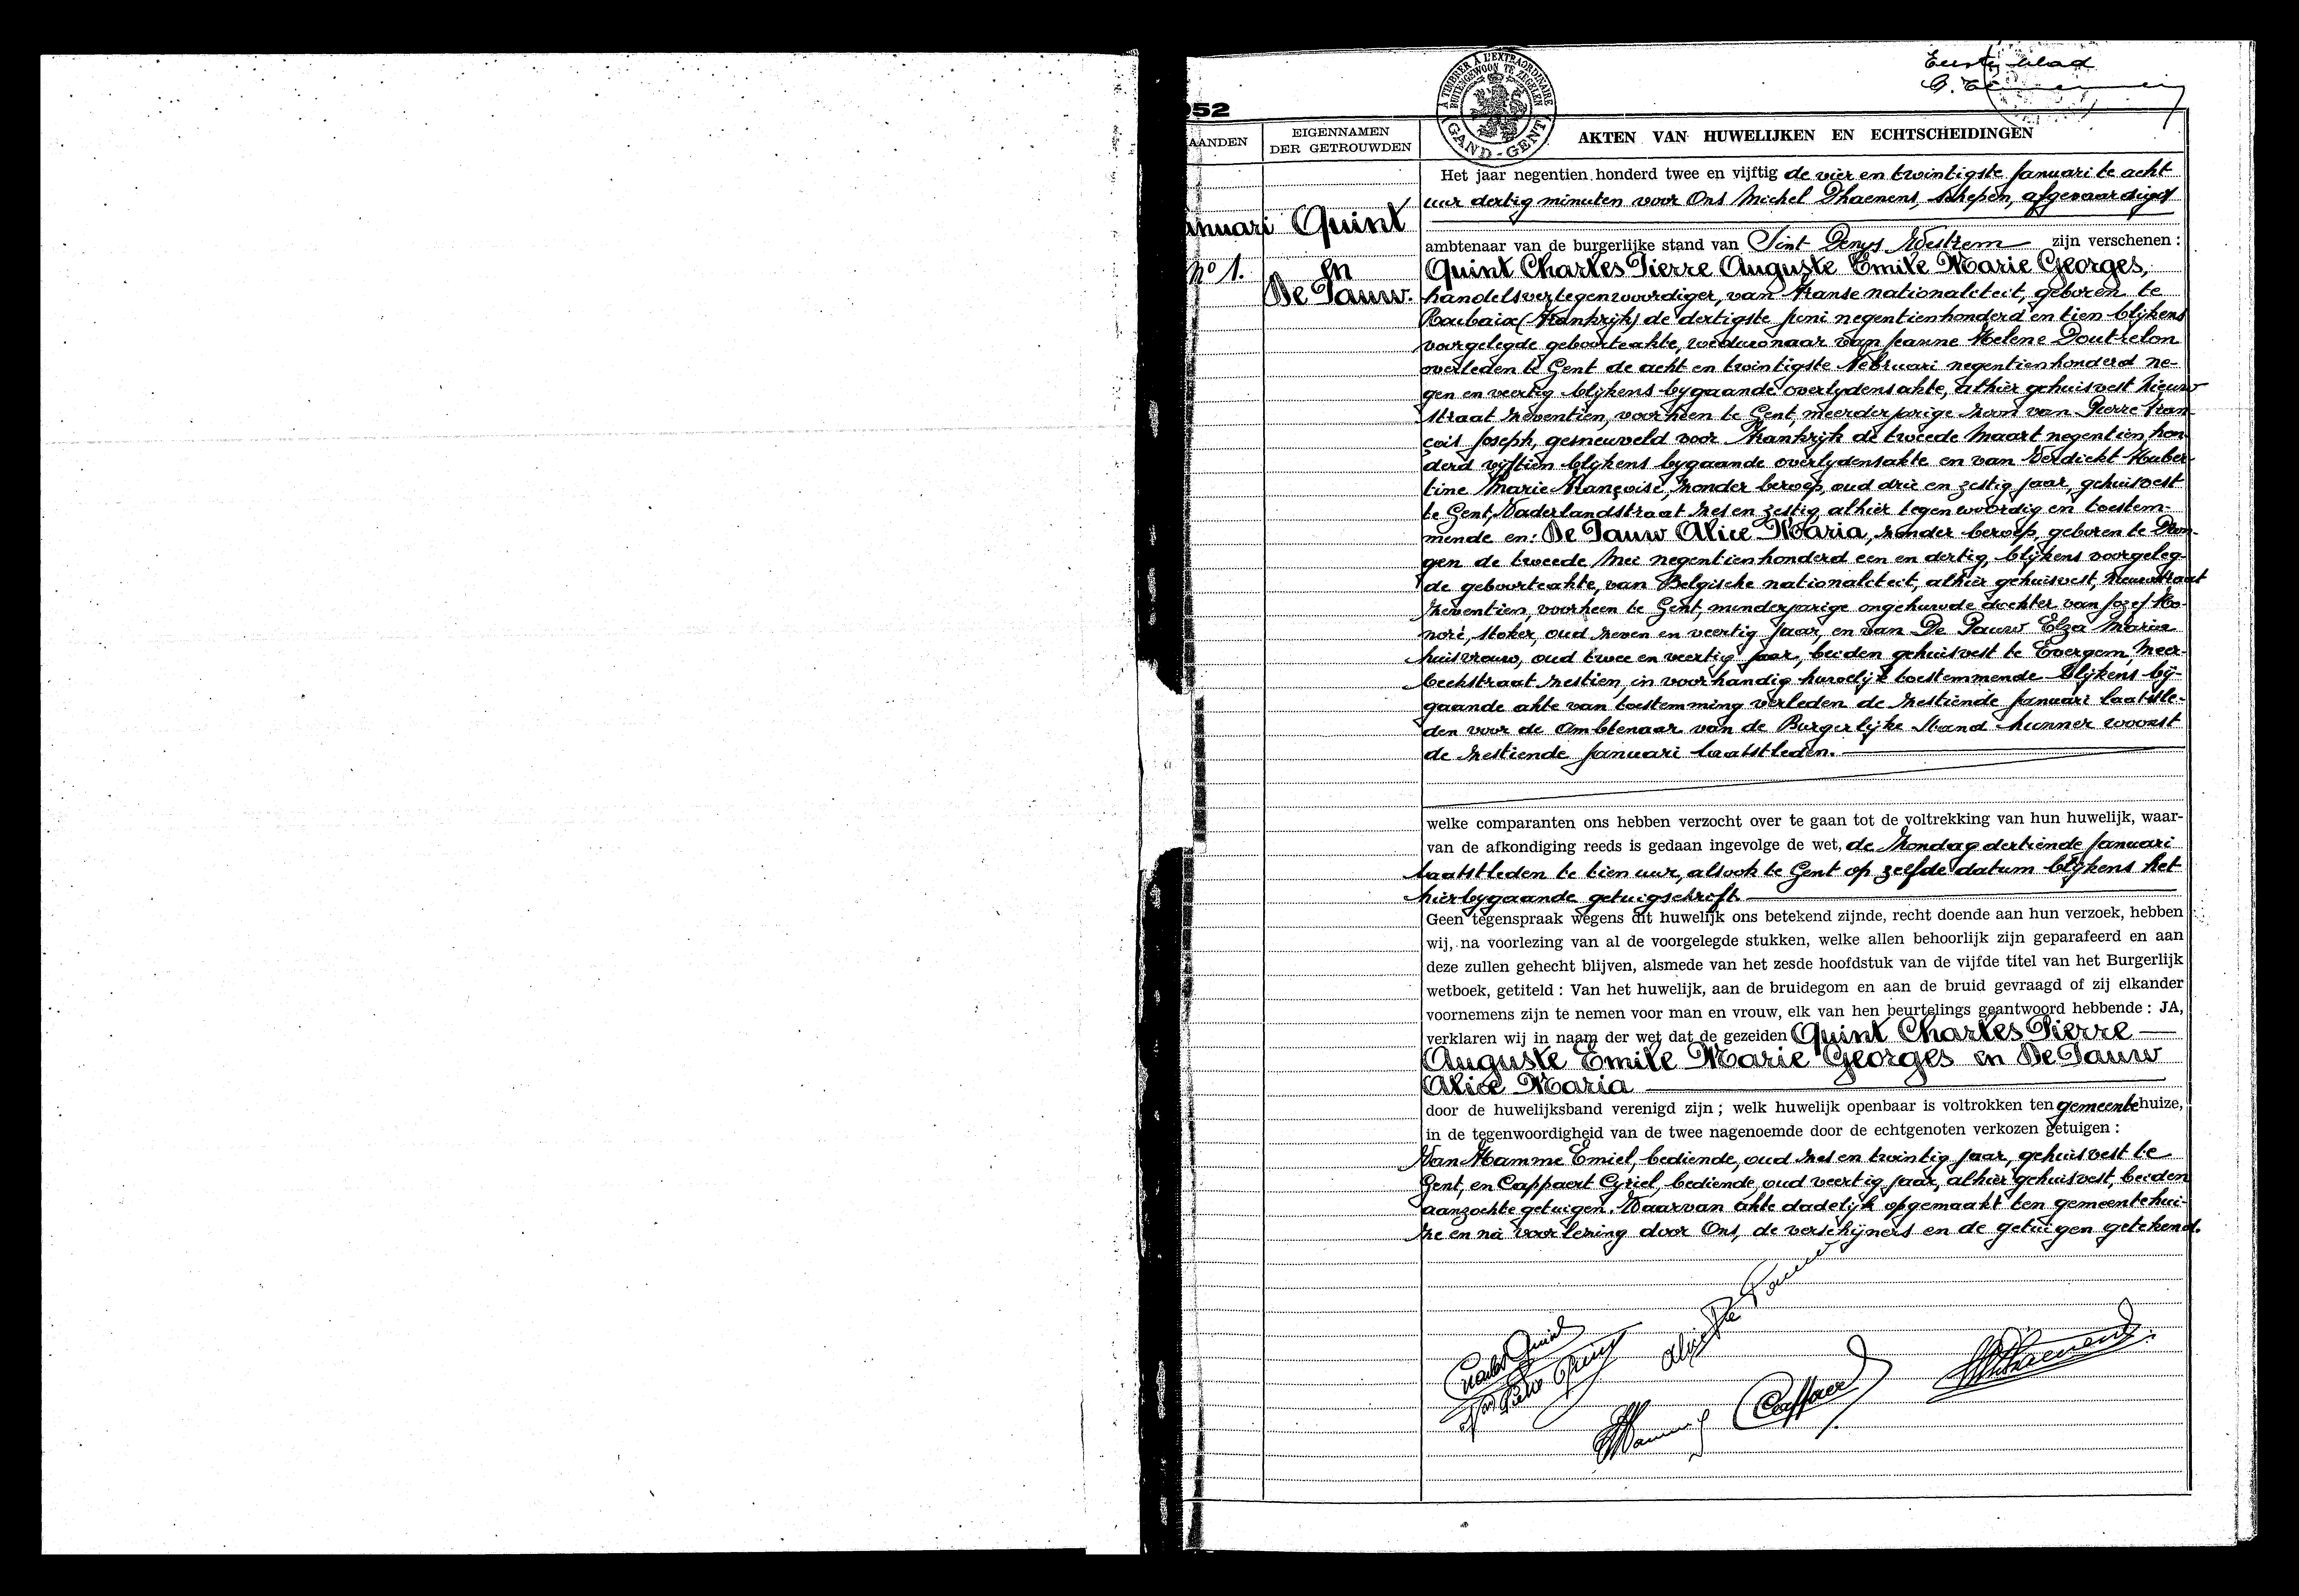 Eerste blad
952
A TIMBRER À L'EXTRAORDINAIRE
BUITENGEWOON TE ZEGELEN
GAND-GENT
AANDEN
EIGENNAMEN
DER GETROUWDEN
AKTEN VAN HUWELIJKEN EN ECHTSCHEIDINGEN
anuari
No 1.
Quint
en
De Pauw.
Het jaar negentien honderd twee en vijftig de vier en twintigste Januari te acht
uur dertig minuten voor Ons Michel Dhaenens, schepen, afgevaardigd
ambtenaar van de burgerlijke stand van Sint Denys Westrem zijn verschenen :
Quint Charles Pierre Auguste Emile Marie Georges,
handelsvertegenwoordiger, van Franse nationaliteit, geboren te
Roubaix (Frankrijk) de dertigste juni negentienhonderd en tien blijkens
voorgelegde geboorteakte, weduwnaar van Jeanne Helene Doutrelon
overleden te Gent de acht en twintigste Februari negentienhonderd ne-
gen en veertig blijkens bygaande overlydensakte, alhier gehuisvest Nieuw
straat zeventien, voorheen te Gent, meerderjarige zoon van Pierre Fran-
çois Joseph, gesneuveld voor Frankrijk de tweede Maart negentien hon-
derd vijftien blijkens bygaande overlydensakte en van Verdickt Huber-
tine Marie Françoise, zonder beroep, oud drie en zestig jaar, gehuisvest
te Gent, Vaderlandstraat zes en zestig alhier tegenwoordig en toestem-
mende en: De Pauw Alice Maria, zonder beroep, geboren te Dron-
gen de tweede Mei negentienhonderd een en dertig, blijkens voorgeleg-
de geboorteakte, van Belgische nationaliteit, alhier gehuisvest, Nieuwstraat
zeventien, voorheen te Gent, minderjarige ongehuwde dochter van Jozef Ho-
noré, stoker, oud zeven en veertig jaar, en van De Pauw Elza Maria
huisvrouw, oud twee en veertig jaar, beiden gehuisvest te Evergem, Meer-
beekstraat zestien, in voorhandig huwelijk toestemmende blijkens bij-
gaande akte van toestemming verleden de zestiende Januari laatstle-
den voor de Ambtenaar van de Burgerlijke Stand hunner woonst
de zestiende Januari laatstleden.
welke comparanten ons hebben verzocht over te gaan tot de voltrekking van hun huwelijk, waar-
van de afkondiging reeds is gedaan ingevolge de wet, de Zondag dertiende Januari
laatstleden te tien uur, alsook te Gent op zelfde datum blijkens het
hierbygaande getuigschrift.
Geen tegenspraak wegens dit huwelijk ons betekend zijnde, recht doende aan hun verzoek, hebben
wij, na voorlezing van al de voorgelegde stukken, welke allen behoorlijk zijn geparafeerd en aan
deze zullen gehecht blijven, alsmede van het zesde hoofdstuk van de vijfde titel van het Burgerlijk
wetboek, getiteld : Van het huwelijk, aan de bruidegom en aan de bruid gevraagd of zij elkander
voornemens zijn te nemen voor man en vrouw, elk van hen beurtelings geantwoord hebbende : JA,
verklaren wij in naam der wet dat de gezeiden Quint Charles Pierre
Auguste Emile Marie Georges en De Pauw
Alice Maria
door de huwelijksband verenigd zijn ; welk huwelijk openbaar is voltrokken ten gemeentehuize,
in de tegenwoordigheid van de twee nagenoemde door de echtgenoten verkozen getuigen :
Van Hamme Emiel, bediende, oud zes en twintig jaar, gehuisvest te
Gent, en Cappaert Cyriel, bediende, oud veertig jaar, alhier gehuisvest, beiden
aanzochte getuigen. Waarvan akte dadelijk opgemaakt ten gemeentehui-
ze en na voorlezing door Ons, de verschijners en de getuigen getekend.
Charles Quint
Alice De Pauw
Cappaert
MDhaenens